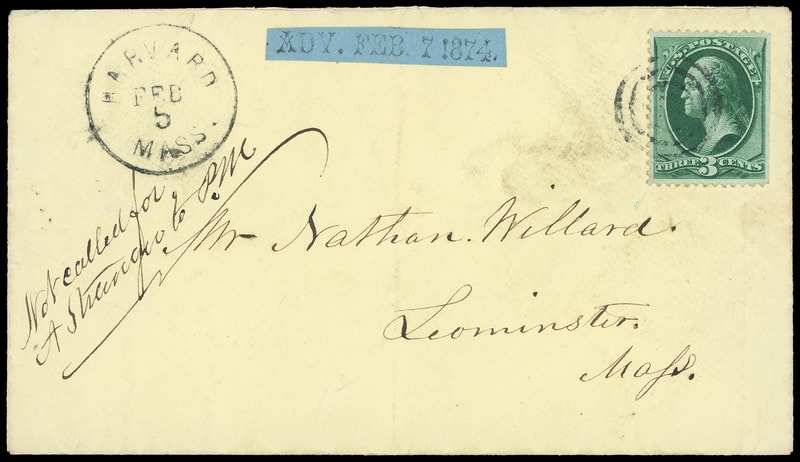 ADV. FEB. 7 1874.
HARVARD
FEB
5
MASS.
U.S. POSTAGE
THREE 3 CENTS
Not called for
A Stranger to PM
Mr Nathan. Willard.
Leominster.
Mass.